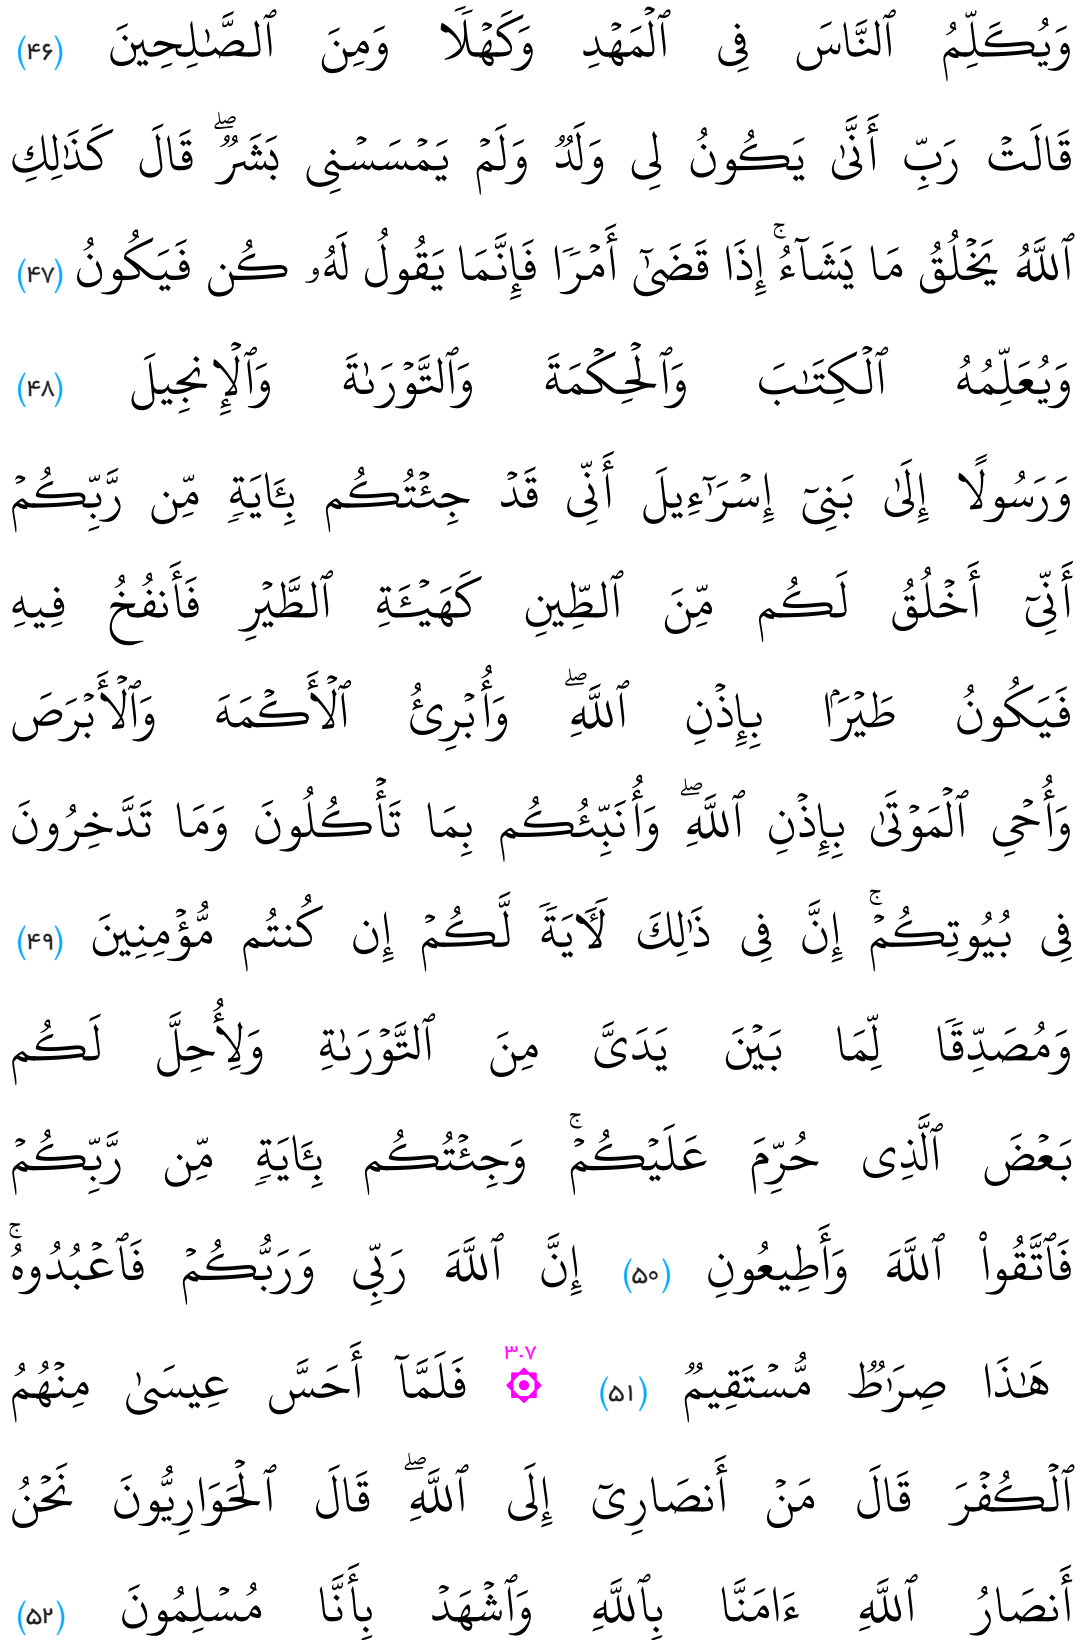 وَيُكَلِّمُ ٱلنَّاسَ فِى ٱلْمَهْدِ وَكَهْلًا وَمِنَ ٱلصَّٰلِحِينَ (۴۶)
قَالَتْ رَبِّ أَنَّىٰ يَكُونُ لِى وَلَدٌ وَلَمْ يَمْسَسْنِى بَشَرٌ ۖ قَالَ كَذَٰلِكِ
ٱللَّهُ يَخْلُقُ مَا يَشَآءُ ۚ إِذَا قَضَىٰٓ أَمْرًا فَإِنَّمَا يَقُولُ لَهُۥ كُن فَيَكُونُ (۴۷)
وَيُعَلِّمُهُ ٱلْكِتَٰبَ وَٱلْحِكْمَةَ وَٱلتَّوْرَىٰةَ وَٱلْإِنجِيلَ (۴۸)
وَرَسُولًا إِلَىٰ بَنِىٓ إِسْرَٰٓءِيلَ أَنِّى قَدْ جِئْتُكُم بِـَٔايَةٍ مِّن رَّبِّكُمْ
أَنِّىٓ أَخْلُقُ لَكُم مِّنَ ٱلطِّينِ كَهَيْـَٔةِ ٱلطَّيْرِ فَأَنفُخُ فِيهِ
فَيَكُونُ طَيْرًۢا بِإِذْنِ ٱللَّهِ ۖ وَأُبْرِئُ ٱلْأَكْمَهَ وَٱلْأَبْرَصَ
وَأُحْىِ ٱلْمَوْتَىٰ بِإِذْنِ ٱللَّهِ ۖ وَأُنَبِّئُكُم بِمَا تَأْكُلُونَ وَمَا تَدَّخِرُونَ
فِى بُيُوتِكُمْ ۚ إِنَّ فِى ذَٰلِكَ لَـَٔايَةً لَّكُمْ إِن كُنتُم مُّؤْمِنِينَ (۴۹)
وَمُصَدِّقًا لِّمَا بَيْنَ يَدَىَّ مِنَ ٱلتَّوْرَىٰةِ وَلِأُحِلَّ لَكُم
بَعْضَ ٱلَّذِى حُرِّمَ عَلَيْكُمْ ۚ وَجِئْتُكُم بِـَٔايَةٍ مِّن رَّبِّكُمْ
فَٱتَّقُوا۟ ٱللَّهَ وَأَطِيعُونِ (۵۰) إِنَّ ٱللَّهَ رَبِّى وَرَبُّكُمْ فَٱعْبُدُوهُ ۚ
هَٰذَا صِرَٰطٌ مُّسْتَقِيمٌ (۵۱) ۞ ۳۰۷ فَلَمَّآ أَحَسَّ عِيسَىٰ مِنْهُمُ
ٱلْكُفْرَ قَالَ مَنْ أَنصَارِىٓ إِلَى ٱللَّهِ ۖ قَالَ ٱلْحَوَارِيُّونَ نَحْنُ
أَنصَارُ ٱللَّهِ ءَامَنَّا بِٱللَّهِ وَٱشْهَدْ بِأَنَّا مُسْلِمُونَ (۵۲)